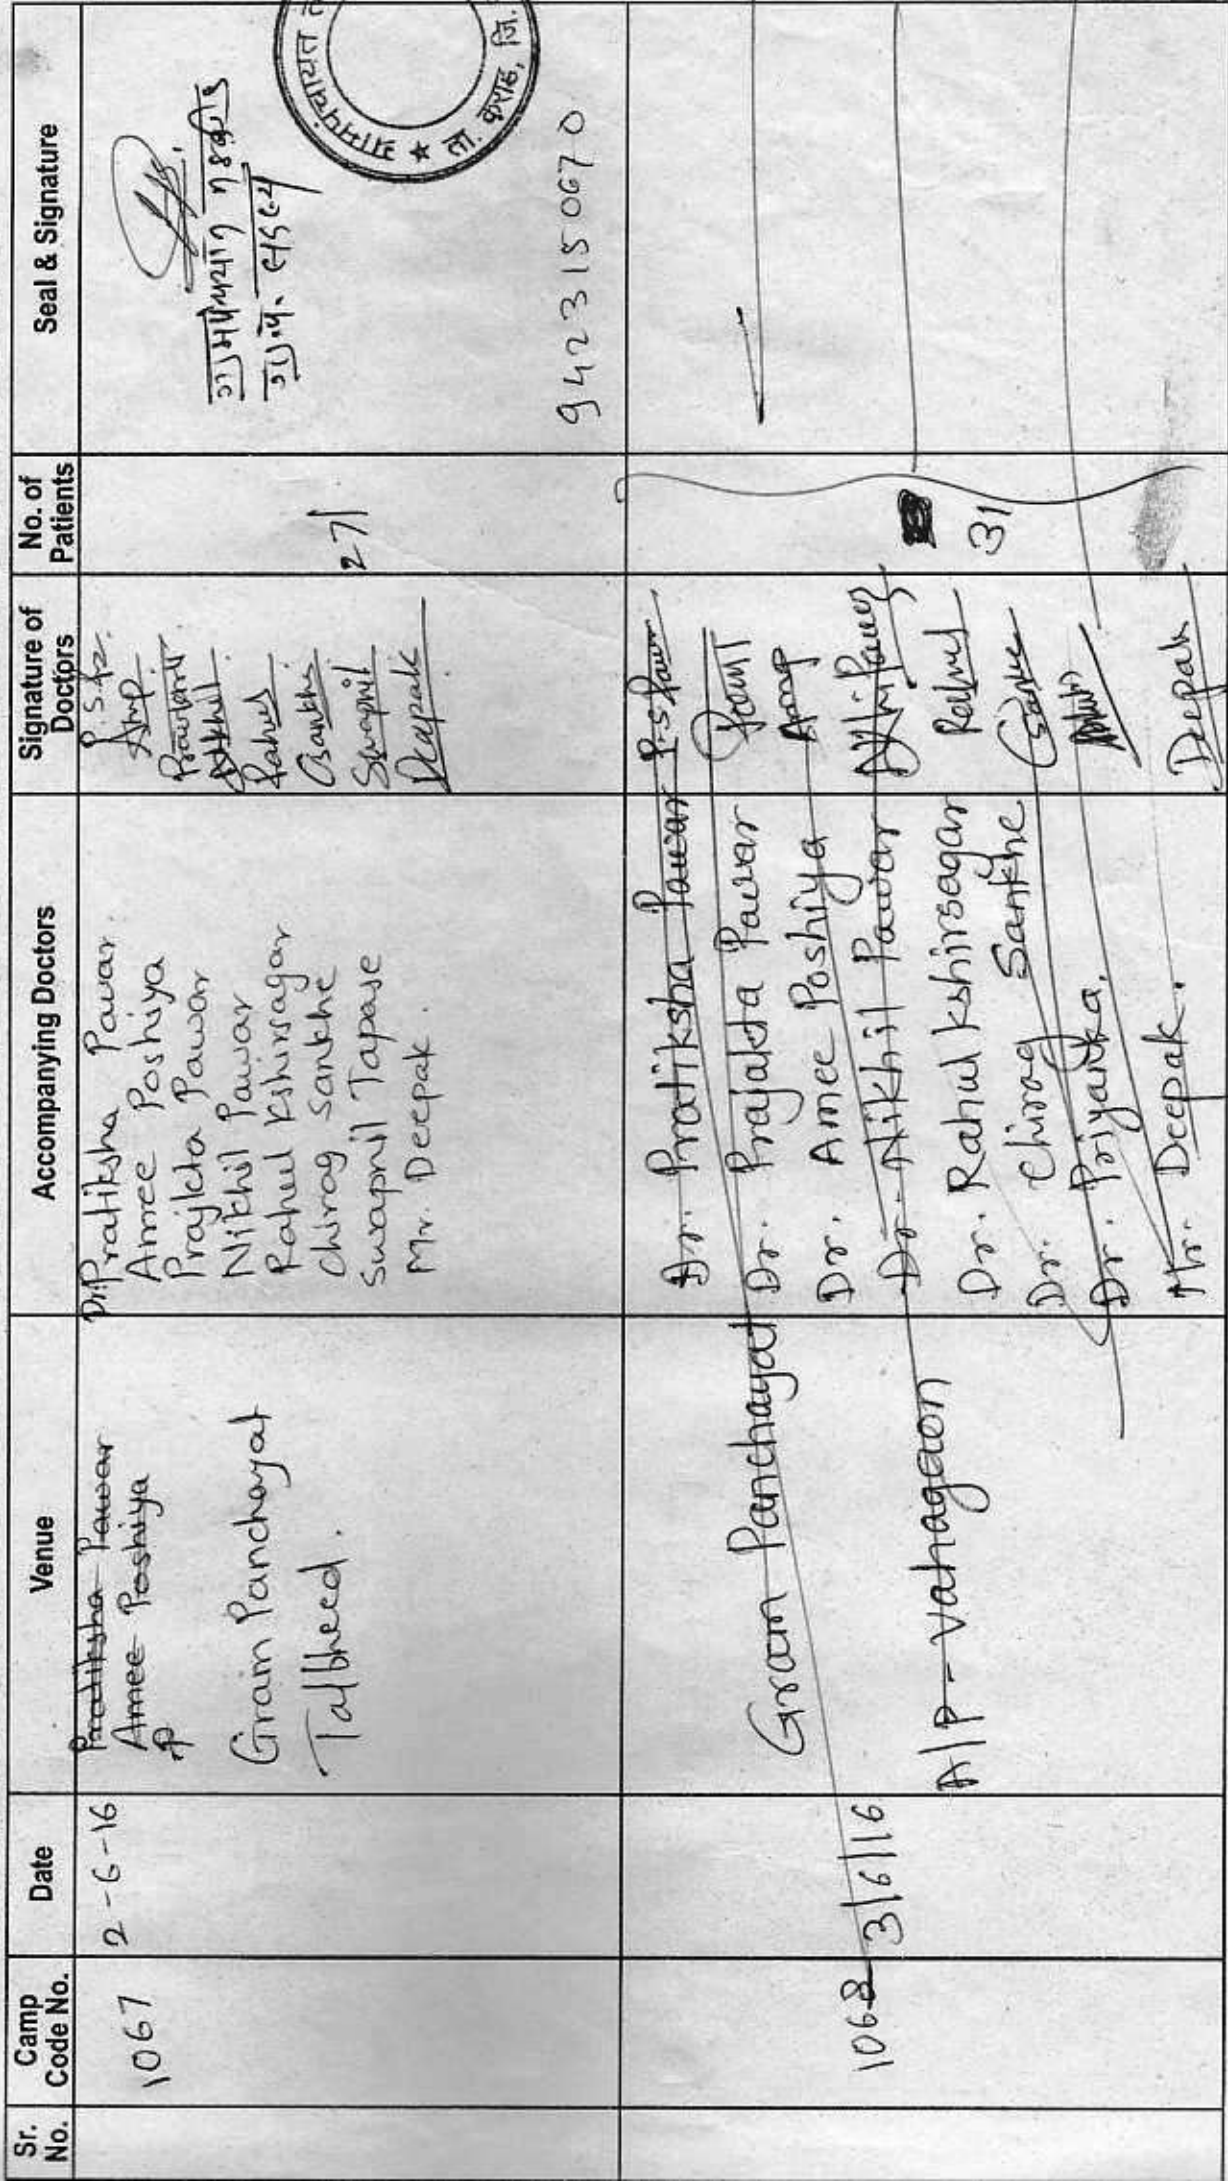 Sr. No.
Camp Code No.
Date
Venue
Accompanying Doctors
Signature of Doctors
No. of Patients
Seal & Signature
1067
2-6-16
Pratiksha Pawar
Amee Poshiya
P
Gram Panchayat
Talbheed.
Dr. Pratiksha Pawar
Amee Poshiya
Prajkta Pawar
Nikhil Pawar
Rahul Kshirsagar
Chirag Sankhe
Swapnil Tapase
Mr. Deepak.
Nikhil
Rahul
Sankhe
Swapnil
Deepak
27
ग्रा.पं. सदस्य
ग्रामपंचायत
ता. कराड, जि.
9423150670
1068
3/6/16
Gram Panchayat
A/P - Vahagaon
Dr. Pratiksha Pawar
Dr. Prajakta Pawar
Dr. Amee Poshiya
Dr. Nikhil Pawar
Dr. Rahul Kshirsagar
Dr. Chirag Sankhe
Dr. Priyanka.
Mr. Deepak.
P.S. Pawar
Rahul
Deepak
31